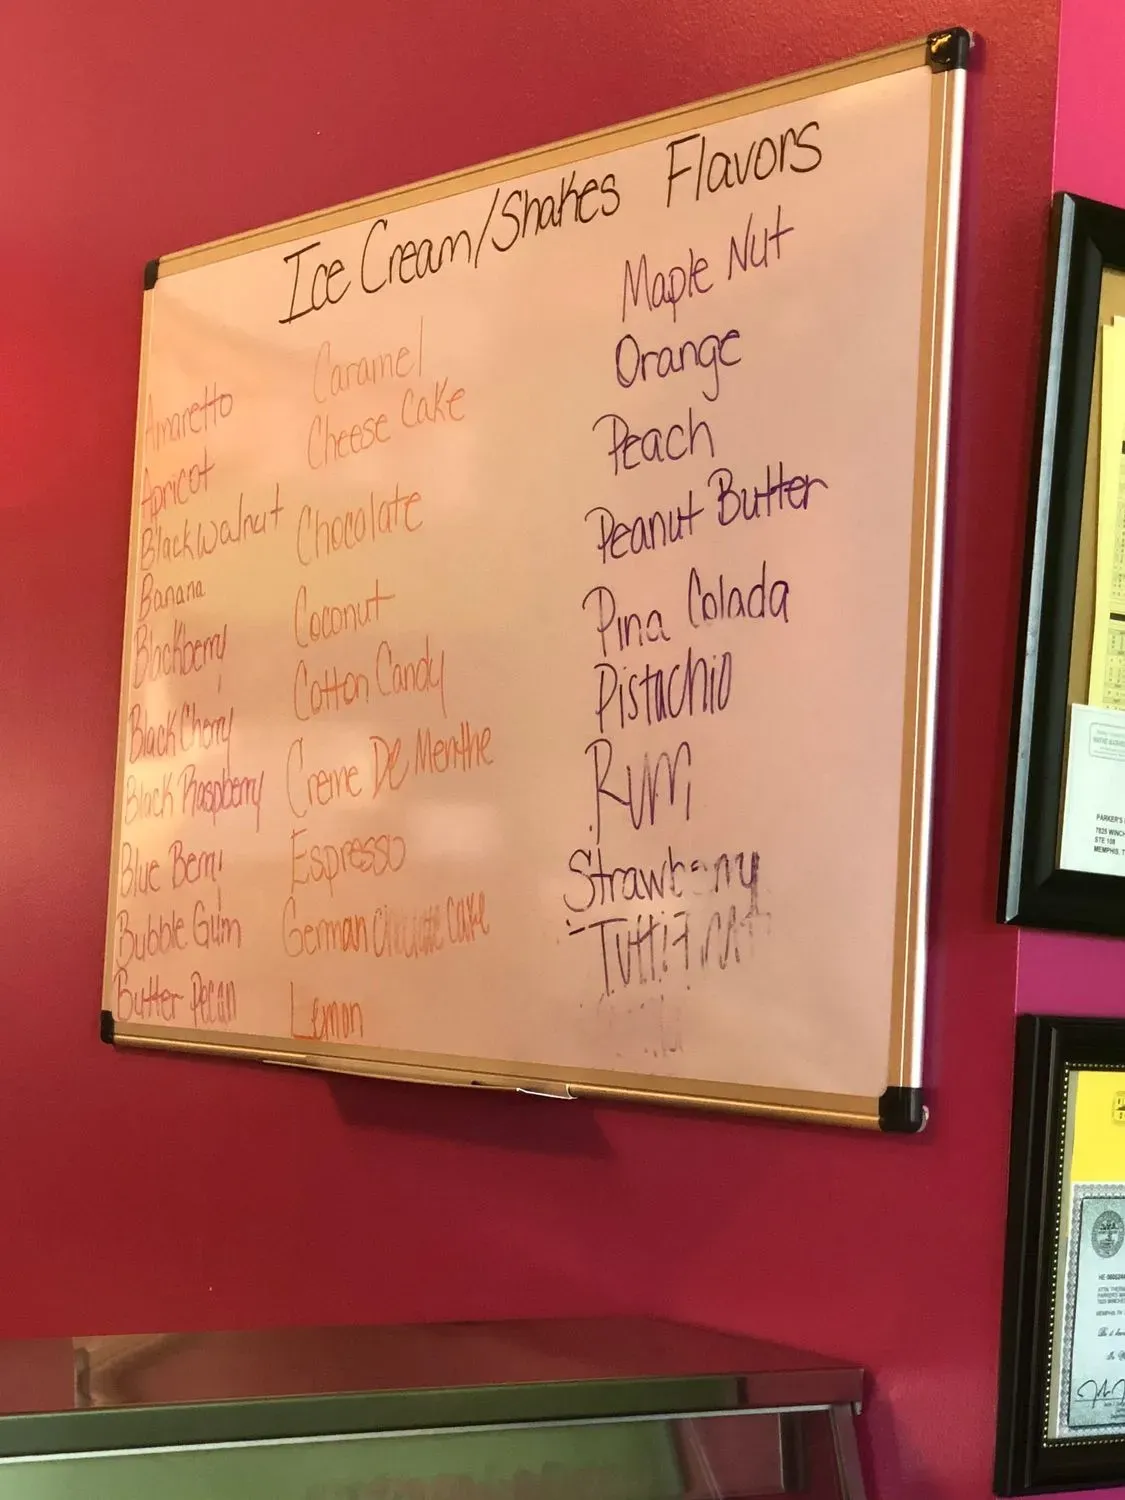 Ice Cream/Shakes Flavors
Amaretto
Apricot
Black walnut
Banana
Blackberry
Black Cherry
Black Raspberry
Blue Berry
Bubble Gum
Butter Pecan
Caramel
Cheese Cake
Chocolate
Coconut
Cotton Candy
Creme De Menthe
Espresso
German Chocolate Cake
Lemon
Maple Nut
Orange
Peach
Peanut Butter
Pina Colada
Pistachio
Rum
Strawberry
Tutti
PARKER'S
7825 WINCH
STE 108
MEMPHIS, T